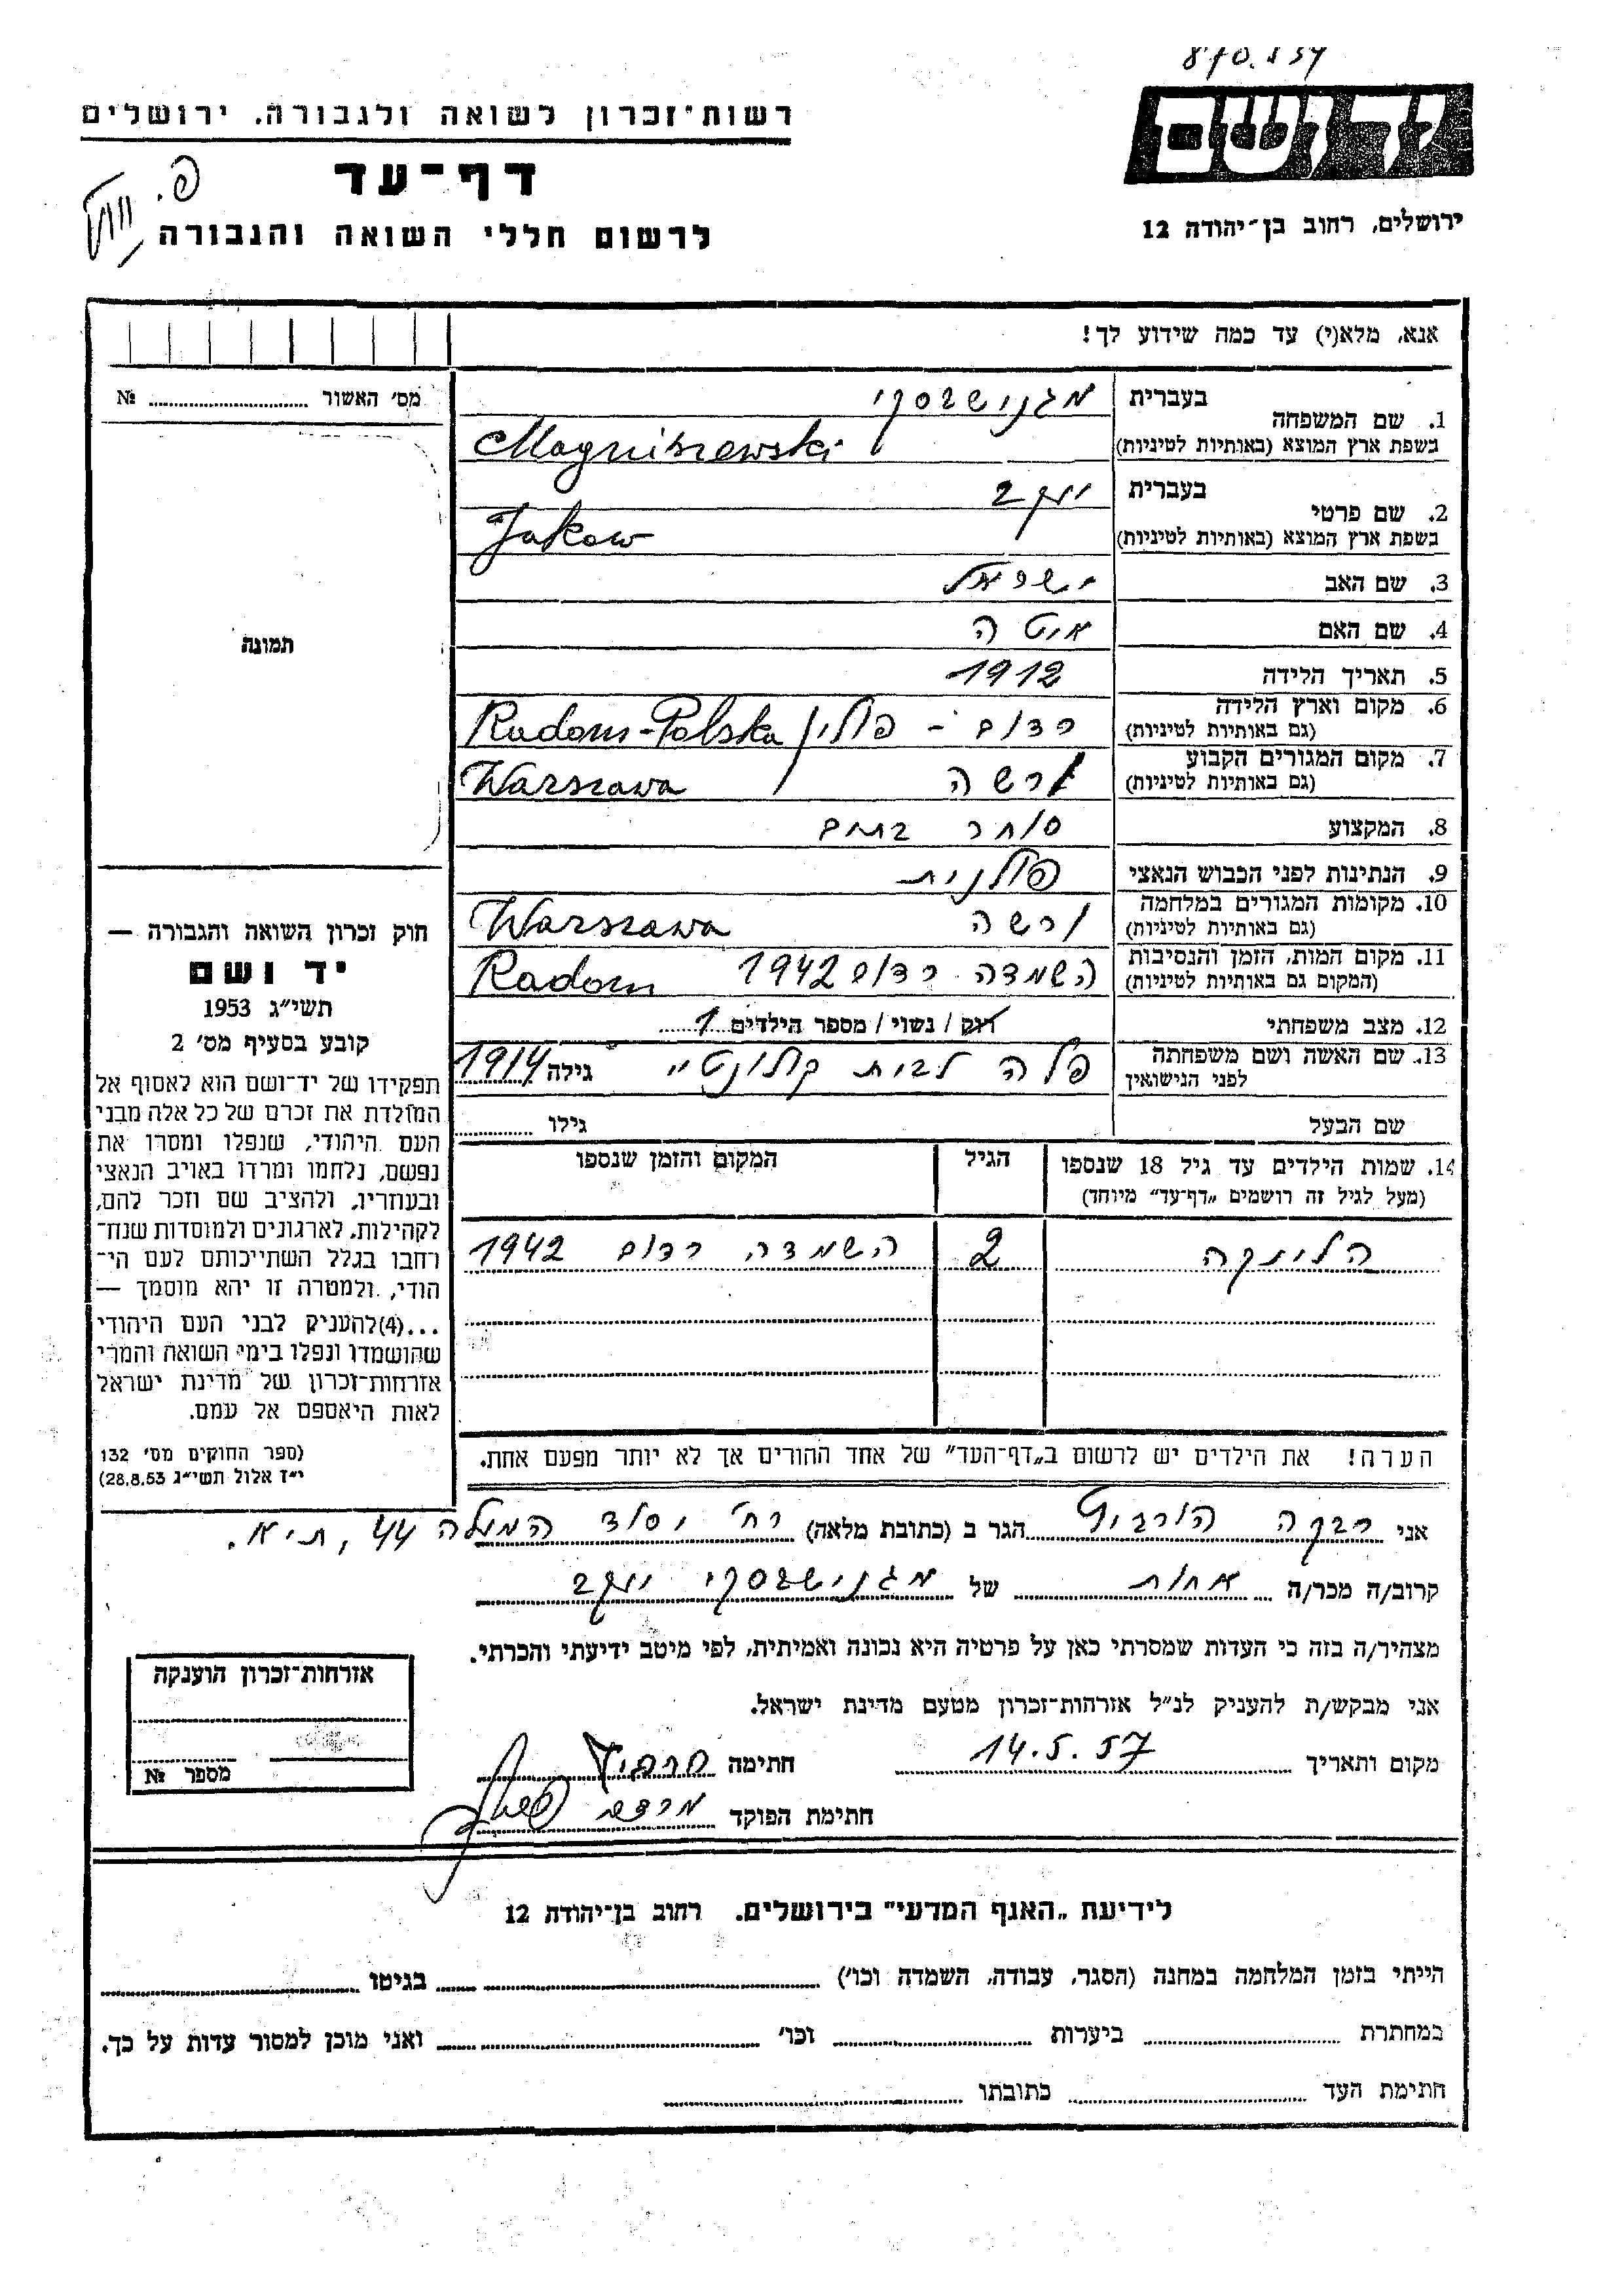 יד ושם
ירושלים, רחוב בן־יהודה 12
רשות־זכרון לשואה ולגבורה, ירושלים
דף־עד
לרשום חללי השואה והגבורה
אנא, מלא(י) עד כמה שידוע לך!
1. שם המשפחה בעברית מגנישבסקי
בשפת ארץ המוצא (באותיות לטיניות) Magniszewski
2. שם פרטי בעברית יעקב
בשפת ארץ המוצא (באותיות לטיניות) Jakow
3. שם האב ישראל
4. שם האם איטה
5. תאריך הלידה 1912
6. מקום וארץ הלידה (גם באותיות לטיניות) רדום - פולין Radom-Polska
7. מקום המגורים הקבוע (גם באותיות לטיניות) ורשה Warszawa
8. המקצוע סוחר
9. הנתינות לפני הכבוש הנאצי פולנית
10. מקומות המגורים במלחמה (גם באותיות לטיניות) ורשה Warszawa
11. מקום המות, הזמן והנסיבות (המקום גם באותיות לטיניות) השמדה רדום 1942 Radom
12. מצב משפחתי רוק / נשוי / מספר הילדים 1
13. שם האשה ושם משפחתה לפני הנישואין פלה לבית גילה 1914
שם הבעל גילו
14. שמות הילדים עד גיל 18 שנספו הגיל המקום והזמן שנספו
(מעל לגיל זה רושמים „דף־עד” מיוחד)
הלינקה 2 השמדה רדום 1942
הערה! את הילדים יש לרשום ב„דף־העד” של אחד ההורים אך לא יותר מפעם אחת.
מס' האשור №
תמונה
חוק זכרון השואה והגבורה —
יד ושם
תשי״ג 1953
קובע בסעיף מס' 2
תפקידו של יד־ושם הוא לאסוף אל
המולדת את זכרם של כל אלה מבני
העם היהודי, שנפלו ומסרו את
נפשם, נלחמו ומרדו באויב הנאצי
ובעוזריו, ולהציב שם וזכר להם,
לקהילות, לארגונים ולמוסדות שנח־
רחבו בגלל השתייכותם לעם הי־
הודי, ולמטרה זו יהא מוסמך —
...(4) להעניק לבני העם היהודי
שהושמדו ונפלו בימי השואה והמרי
אזרחות־זכרון של מדינת ישראל
לאות היאספם אל עמם.
(ספר החוקים מס' 132
י״ז אלול תשי״ג 28.8.53)
אני רבקה הורביץ הגר ב (כתובת מלאה) רח' יסוד המעלה 44, ת"א.
קרוב/ה מכר/ה אחות של מגנישבסקי יעקב
מצהיר/ה בזה כי העדות שמסרתי כאן על פרטיה היא נכונה ואמיתית, לפי מיטב ידיעתי והכרתי.
אני מבקש/ת להעניק לנ״ל אזרחות־זכרון מטעם מדינת ישראל.
מקום ותאריך 14.5.57 חתימה
חתימת הפוקד
אזרחות־זכרון הוענקה
מספר №
לידיעת „האגף המדעי” בירושלים, רחוב בן־יהודה 12
הייתי בזמן המלחמה במחנה (הסגר, עבודה, השמדה וכו') בגיטו
במחתרת ביערות וכו' ואני מוכן למסור עדות על כך.
חתימת העד כתובתו